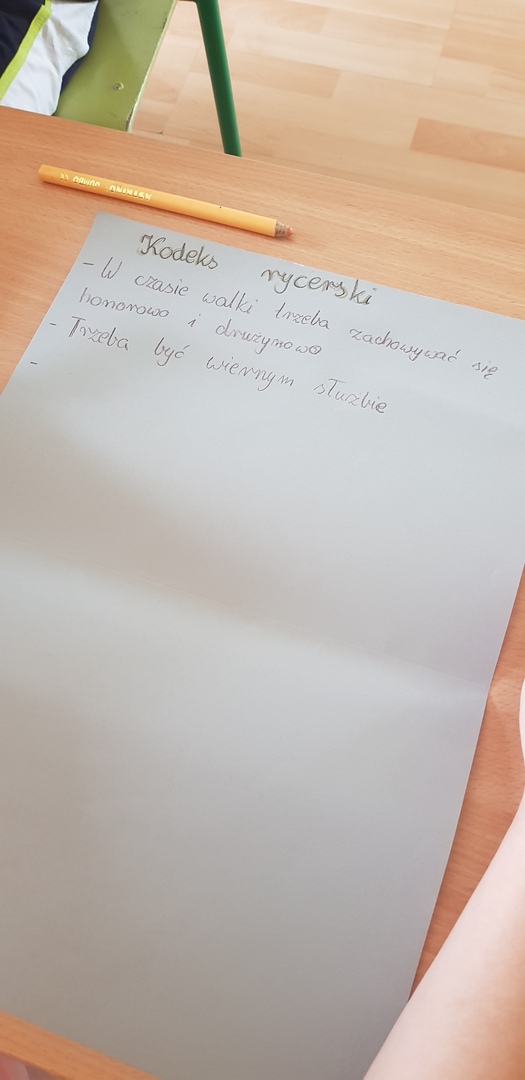 Kodeks rycerski
- W czasie walki trzeba zachowywać się
honorowo i drużynowo
- Trzeba być wiernym służbie
-